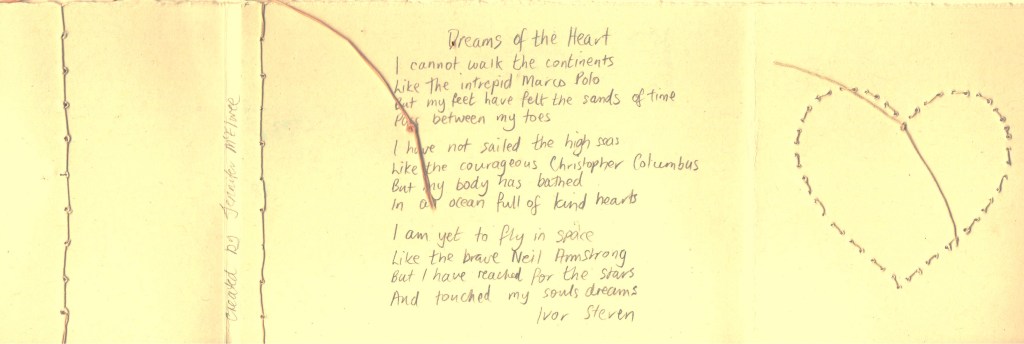 created by Jennifer
Dreams of the Heart
I cannot walk the continents
Like the intrepid Marco Polo
But my feet have felt the sands of time
Pass between my toes
I have not sailed the high seas
Like the courageous Christopher Columbus
But my body has bathed
In an ocean full of kind hearts
I am yet to fly in space
Like the brave Neil Armstrong
But I have reached for the stars
And touched my souls dreams
Ivor Steven